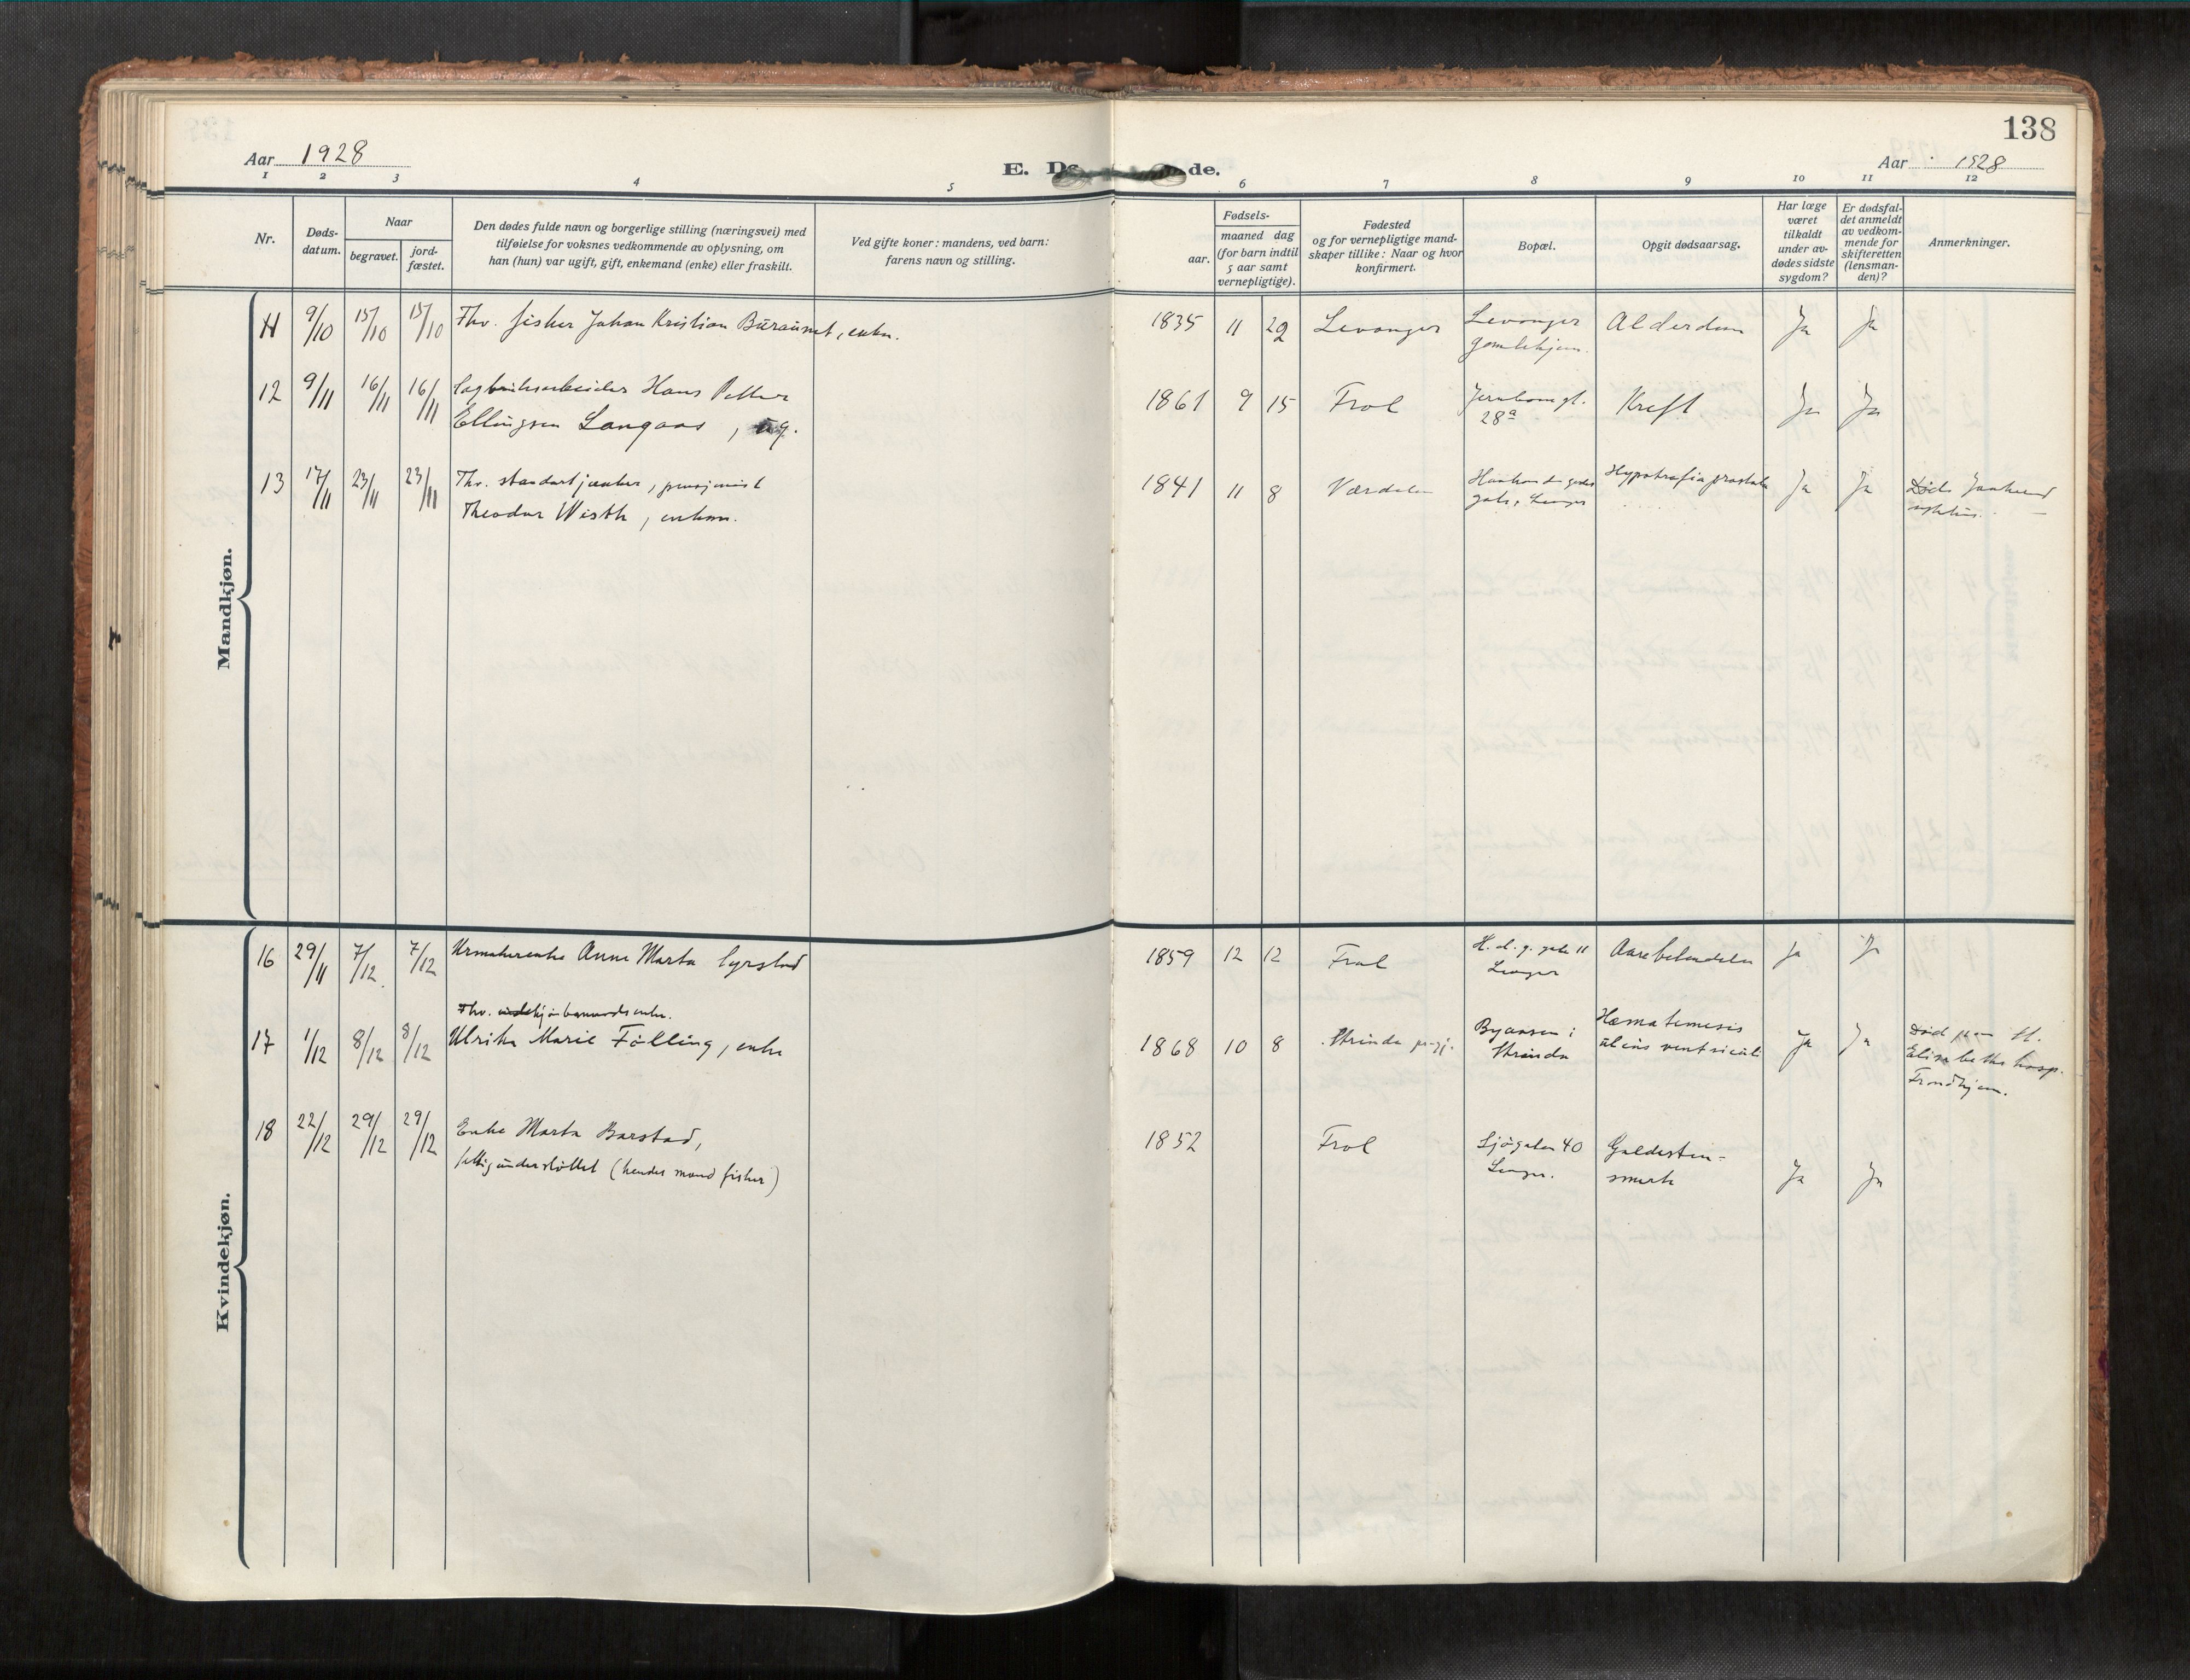 138
Aar 1928
E. Dø de.
Aar 1928
1 2 3 4 5 6 7 8 9 10 11 12
Nr.
Døds-
datum.
Naar
begravet.
jord-
fæstet.
Den dødes fulde navn og borgerlige stilling (næringsvei) med
tilføielse for voksnes vedkommende av oplysning, om
han (hun) var ugift, gift, enkemand (enke) eller fraskilt.
Ved gifte koner: mandens, ved barn:
farens navn og stilling.
Fødsels-
aar.
maaned dag
(for barn indtil
5 aar samt
vernepligtige).
Fødested
og for vernepligtige mand-
skaper tillike: Naar og hvor
konfirmert.
Bopæl.
Opgit dødsaarsag.
Har læge
været
tilkaldt
under av-
dødes sidste
sygdom?
Er dødsfal-
det anmeldt
av vedkom-
mende for
skifteretten
(lensman-
den)?
Anmerkninger.
Mandkjøn.
11 9/10 15/10 15/10 Fhv. fisker Johan Kristian , enkm. 1835 11 29 Levanger Levanger Alderdom Ja Ja
gamlehjem.
12 9/11 16/11 16/11 Sagbruksarbeider Hans Petter 1861 9 15 Frol Jernbanegt. Kreft Ja Ja
Ellingsen Langaas, ug. 28a
13 17/11 23/11 23/11 Fhv. standartjunker, pensjonist 1841 11 8 Værdalen Haakon d. godes Hypotrofia prostata Ja Ja Død
Theodor Wisth, enkem. gate,
Kvindekjøn.
16 29/11 7/12 7/12 Urmakerenke Anne Marta Gyrstad 1859 12 12 Frol H. d. g. gate 11 Aarebetændelse Ja Ja
Fhv.
17 1/12 8/12 8/12 Ulrikke Marie Følling, enke 1868 10 8 Strinda Byaasen i Hæmatemesis Ja Ja Død paa St.
Strinda ulcus ventriculi Elisabeths hosp.
Trondhjem.
18 22/12 29/12 29/12 Enke Marta Barstad, 1852 Frol Sjøgaten 40 Galdesten-
fattigunderstøttet (hendes mand fisker) smerte Ja Ja